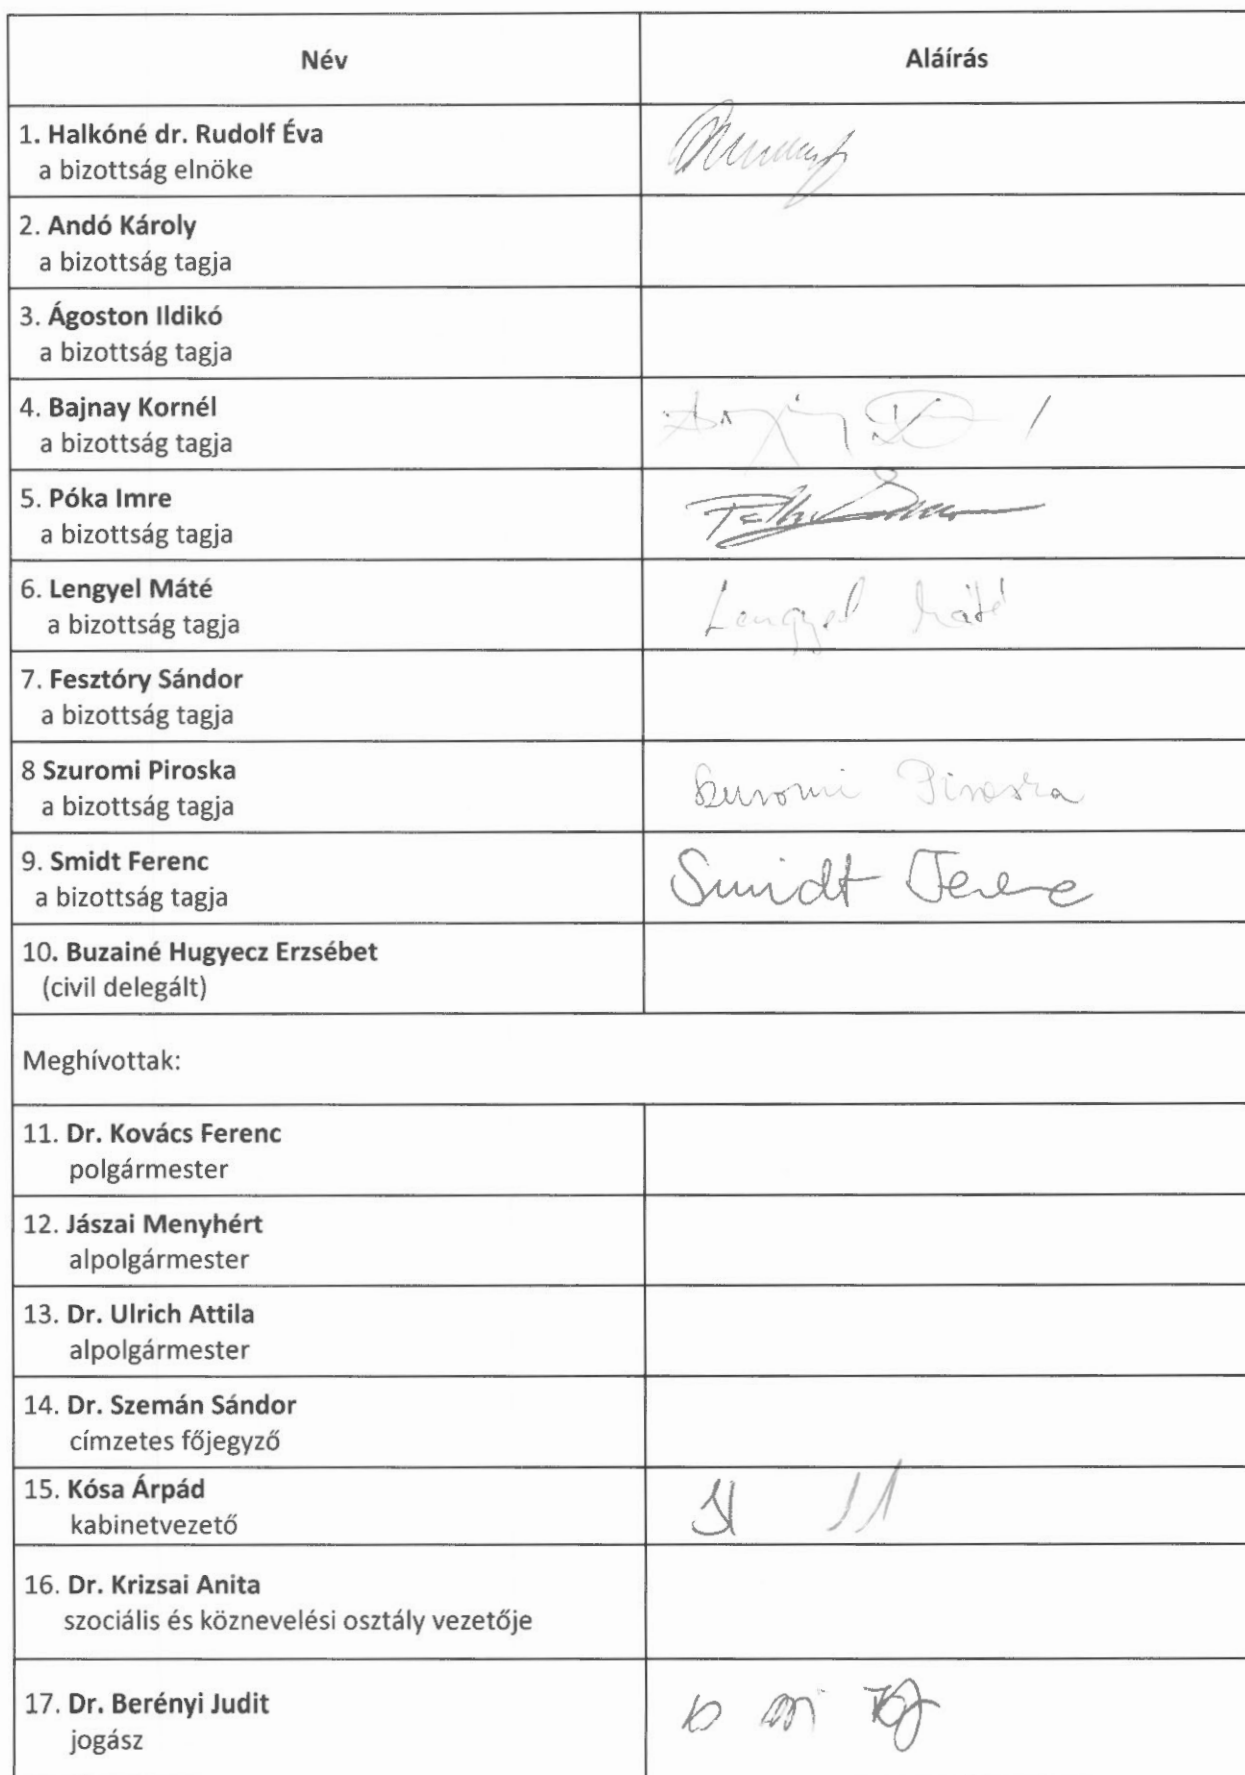 Név
Aláírás
1. Halkóné dr. Rudolf Éva
a bizottság elnöke
2. Andó Károly
a bizottság tagja
3. Ágoston Ildikó
a bizottság tagja
4. Bajnay Kornél
a bizottság tagja
5. Póka Imre
a bizottság tagja
6. Lengyel Máté
a bizottság tagja
Lengyel Máté
7. Fesztóry Sándor
a bizottság tagja
8 Szuromi Piroska
a bizottság tagja
Szuromi Piroska
9. Smidt Ferenc
a bizottság tagja
Smidt Ferenc
10. Buzainé Hugyecz Erzsébet
(civil delegált)
Meghívottak:
11. Dr. Kovács Ferenc
polgármester
12. Jászai Menyhért
alpolgármester
13. Dr. Ulrich Attila
alpolgármester
14. Dr. Szemán Sándor
címzetes főjegyző
15. Kósa Árpád
kabinetvezető
16. Dr. Krizsai Anita
szociális és köznevelési osztály vezetője
17. Dr. Berényi Judit
jogász